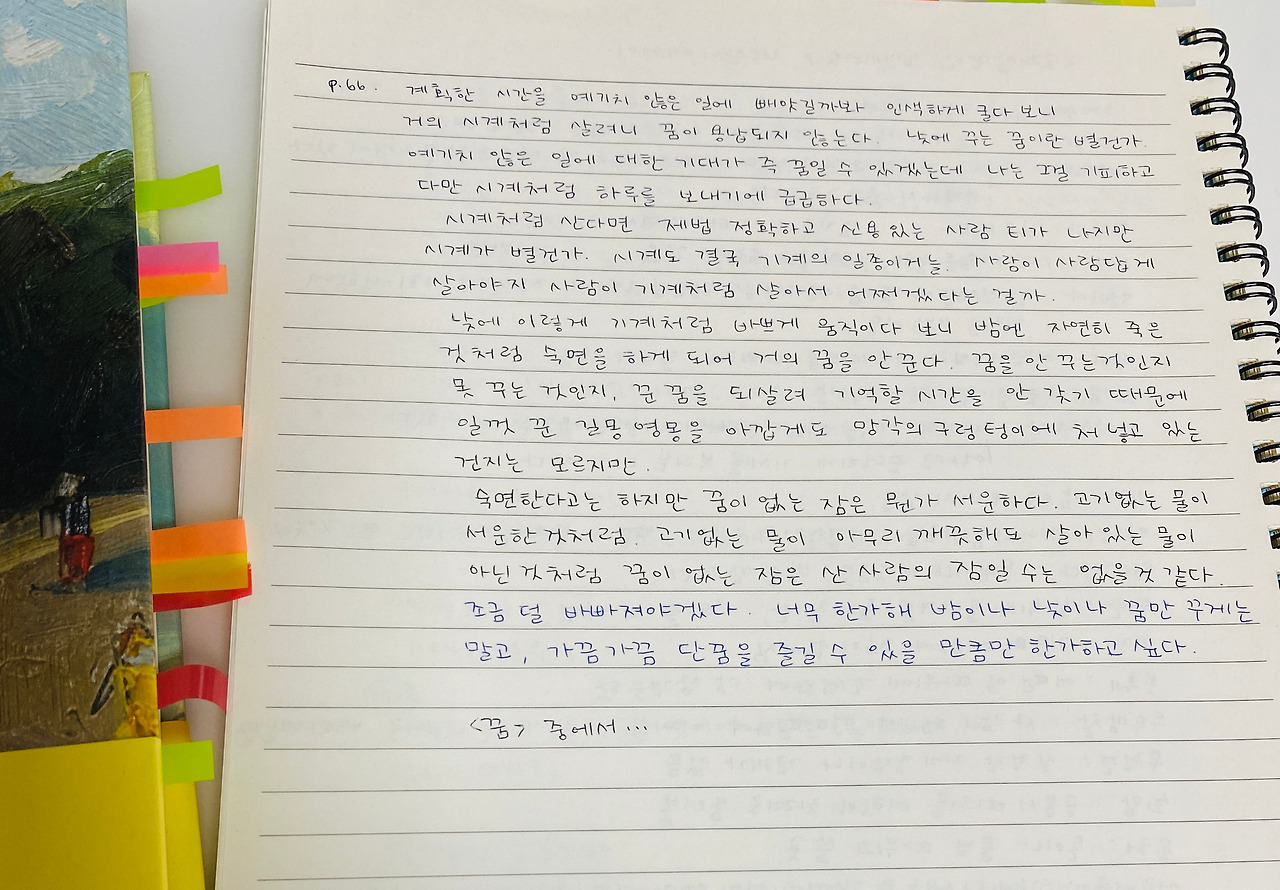 p.66. 계획한 시간을 예기치 않은 일에 빼앗길까봐 인색하게 굴다 보니
거의 시계처럼 살려니 꿈이 용납되지 않는다. 낮에 꾸는 꿈이란 별건가.
예기치 않은 일에 대한 기대가 즉 꿈일 수 있겠는데 나는 그걸 기피하고
다만 시계처럼 하루를 보내기에 급급하다.
시계처럼 산다면 제법 정확하고 신용있는 사람 티가 나지만
시계가 별건가. 시계도 결국 기계의 일종이거늘. 사람이 사람답게
살아야지 사람이 기계처럼 살아서 어쩌겠다는 걸까.
낮에 이렇게 기계처럼 바쁘게 움직이다 보니 밤엔 자연히 죽은
것처럼 숙면을 하게 되어 거의 꿈을 안 꾼다. 꿈을 안 꾸는것인지
못 꾸는 것인지, 꾼 꿈을 되살려 기억할 시간을 안 갖기 때문에
일껏 꾼 길몽 영몽을 아깝게도 망각의 구렁텅이에 처넣고 있는
건지는 모르지만.
숙면한다고는 하지만 꿈이 없는 잠은 뭔가 서운하다. 고기없는 물이
서운한것처럼. 고기없는 물이 아무리 깨끗해도 살아 있는 물이
아닌것처럼 꿈이 없는 잠은 산 사람의 잠일 수는 없을것 같다.
조금 덜 바빠져야겠다. 너무 한가해 밤이나 낮이나 꿈만 꾸게는
말고, 가끔가끔 단꿈을 즐길 수 있을 만큼만 한가하고 싶다.
<꿈> 중에서...